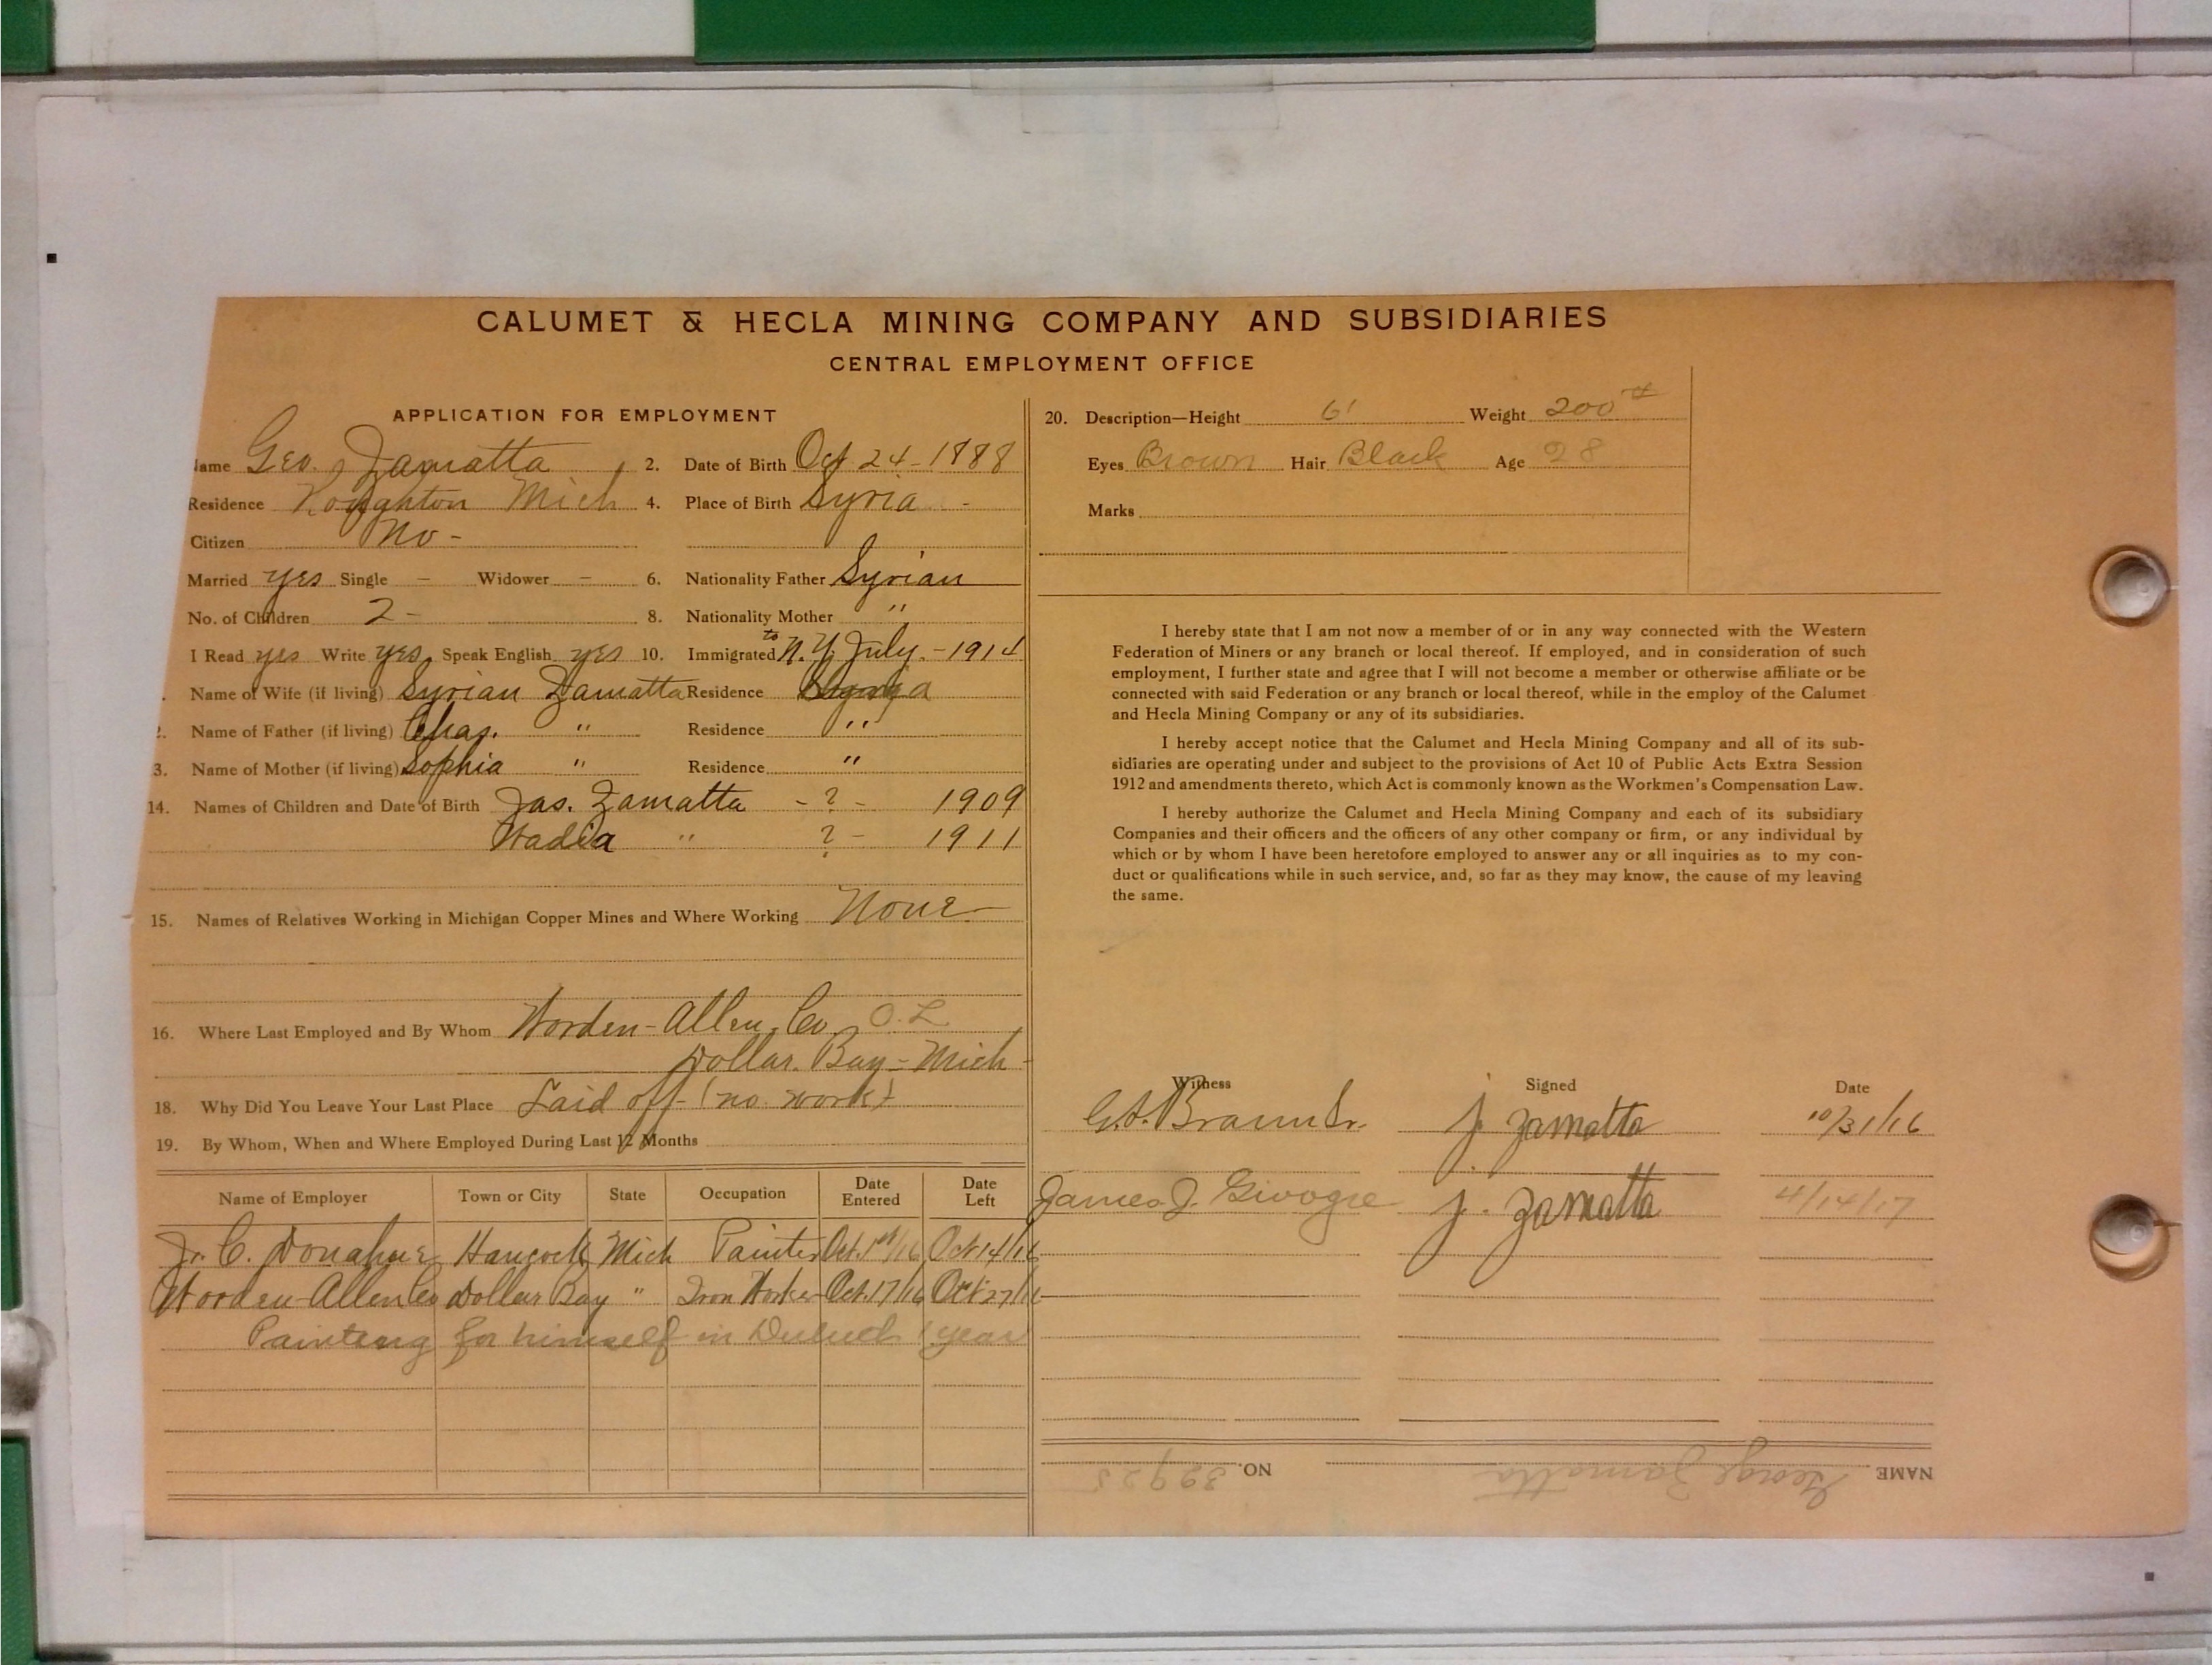 CALUMET & HECLA MINING COMPANY AND SUBSIDIARIES
CENTRAL EMPLOYMENT OFFICE
APPLICATION FOR EMPLOYMENT
ame Geo. Zamatta 2. Date of Birth Oct 24-1888
Residence Houghton Mich 4. Place of Birth Syria -
Citizen No -
Married yes Single - Widower - 6. Nationality Father Syrian
No. of Children 2 - 8. Nationality Mother "
I Read yes Write yes Speak English yes 10. Immigrated to N.Y. July - 1914
Name of Wife (if living) Syrian Zamatta Residence
Name of Father (if living) Chas. " Residence "
3. Name of Mother (if living) Sophia " Residence "
14. Names of Children and Date of Birth Jas. Zamatta - ? - 1909
Wadia " ? - 1911
15. Names of Relatives Working in Michigan Copper Mines and Where Working None
16. Where Last Employed and By Whom Worden-Allen Co. O.L.
Dollar Bay - Mich -
18. Why Did You Leave Your Last Place Laid off (no work)
19. By Whom, When and Where Employed During Last 12 Months
Name of Employer Town or City State Occupation Date Entered Date Left
C. Donahue Hancock Mich Painter Oct. 1st/16 Oct 14/16
Worden-Allen Co Dollar Bay " Iron Worker Oct. 17/16 Oct 27/16
Painting for himself in Duluth 1 year
20. Description—Height 6' Weight 200#
Eyes Brown Hair Black Age 28
Marks
I hereby state that I am not now a member of or in any way connected with the Western
Federation of Miners or any branch or local thereof. If employed, and in consideration of such
employment, I further state and agree that I will not become a member or otherwise affiliate or be
connected with said Federation or any branch or local thereof, while in the employ of the Calumet
and Hecla Mining Company or any of its subsidiaries.
I hereby accept notice that the Calumet and Hecla Mining Company and all of its sub-
sidiaries are operating under and subject to the provisions of Act 10 of Public Acts Extra Session
1912 and amendments thereto, which Act is commonly known as the Workmen's Compensation Law.
I hereby authorize the Calumet and Hecla Mining Company and each of its subsidiary
Companies and their officers and the officers of any other company or firm, or any individual by
which or by whom I have been heretofore employed to answer any or all inquiries as to my con-
duct or qualifications while in such service, and, so far as they may know, the cause of my leaving
the same.
Witness Signed Date
J. Zamatta 10/31/16
James J. J. Zamatta 4/14/17
NAME George Zamatta NO. 39925